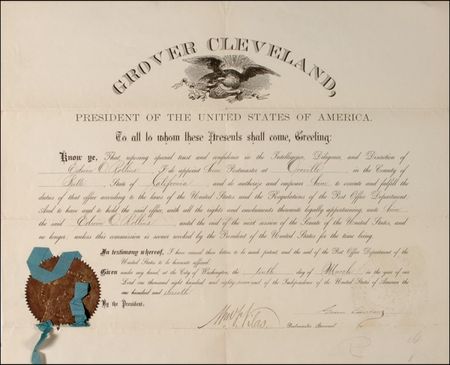 GROVER CLEVELAND,
PRESIDENT OF THE UNITED STATES OF AMERICA.
To all to whom these Presents shall come, Greeting:
Know ye, That, reposing special trust and confidence in the Intelligence, Diligence, and Discretion of
Edwin I do appoint him Postmaster at Oroville in the County of
Butte, State of California and do authorize and empower him to execute and fulfill the
duties of that office according to the laws of the United States and the Regulations of the Post Office Department.
And to have and to hold the said office, with all the rights and emoluments thereunto legally appertaining, unto him
the said Edwin until the end of the next session of the Senate of the United States, and
no longer, unless this commission is sooner revoked by the President of the United States for the time being.
In testimony whereof, I have caused these letters to be made patent, and the seal of the Post Office Department of the
United States to be hereunto affixed.
Given under my hand, at the City of Washington, the tenth day of March in the year of our
Lord one thousand eight hundred and eighty-seven and of the Independence of the United States of America the
one hundred and eleventh.
By the President.
Wm F. Vilas
Grover Cleveland
Postmaster General